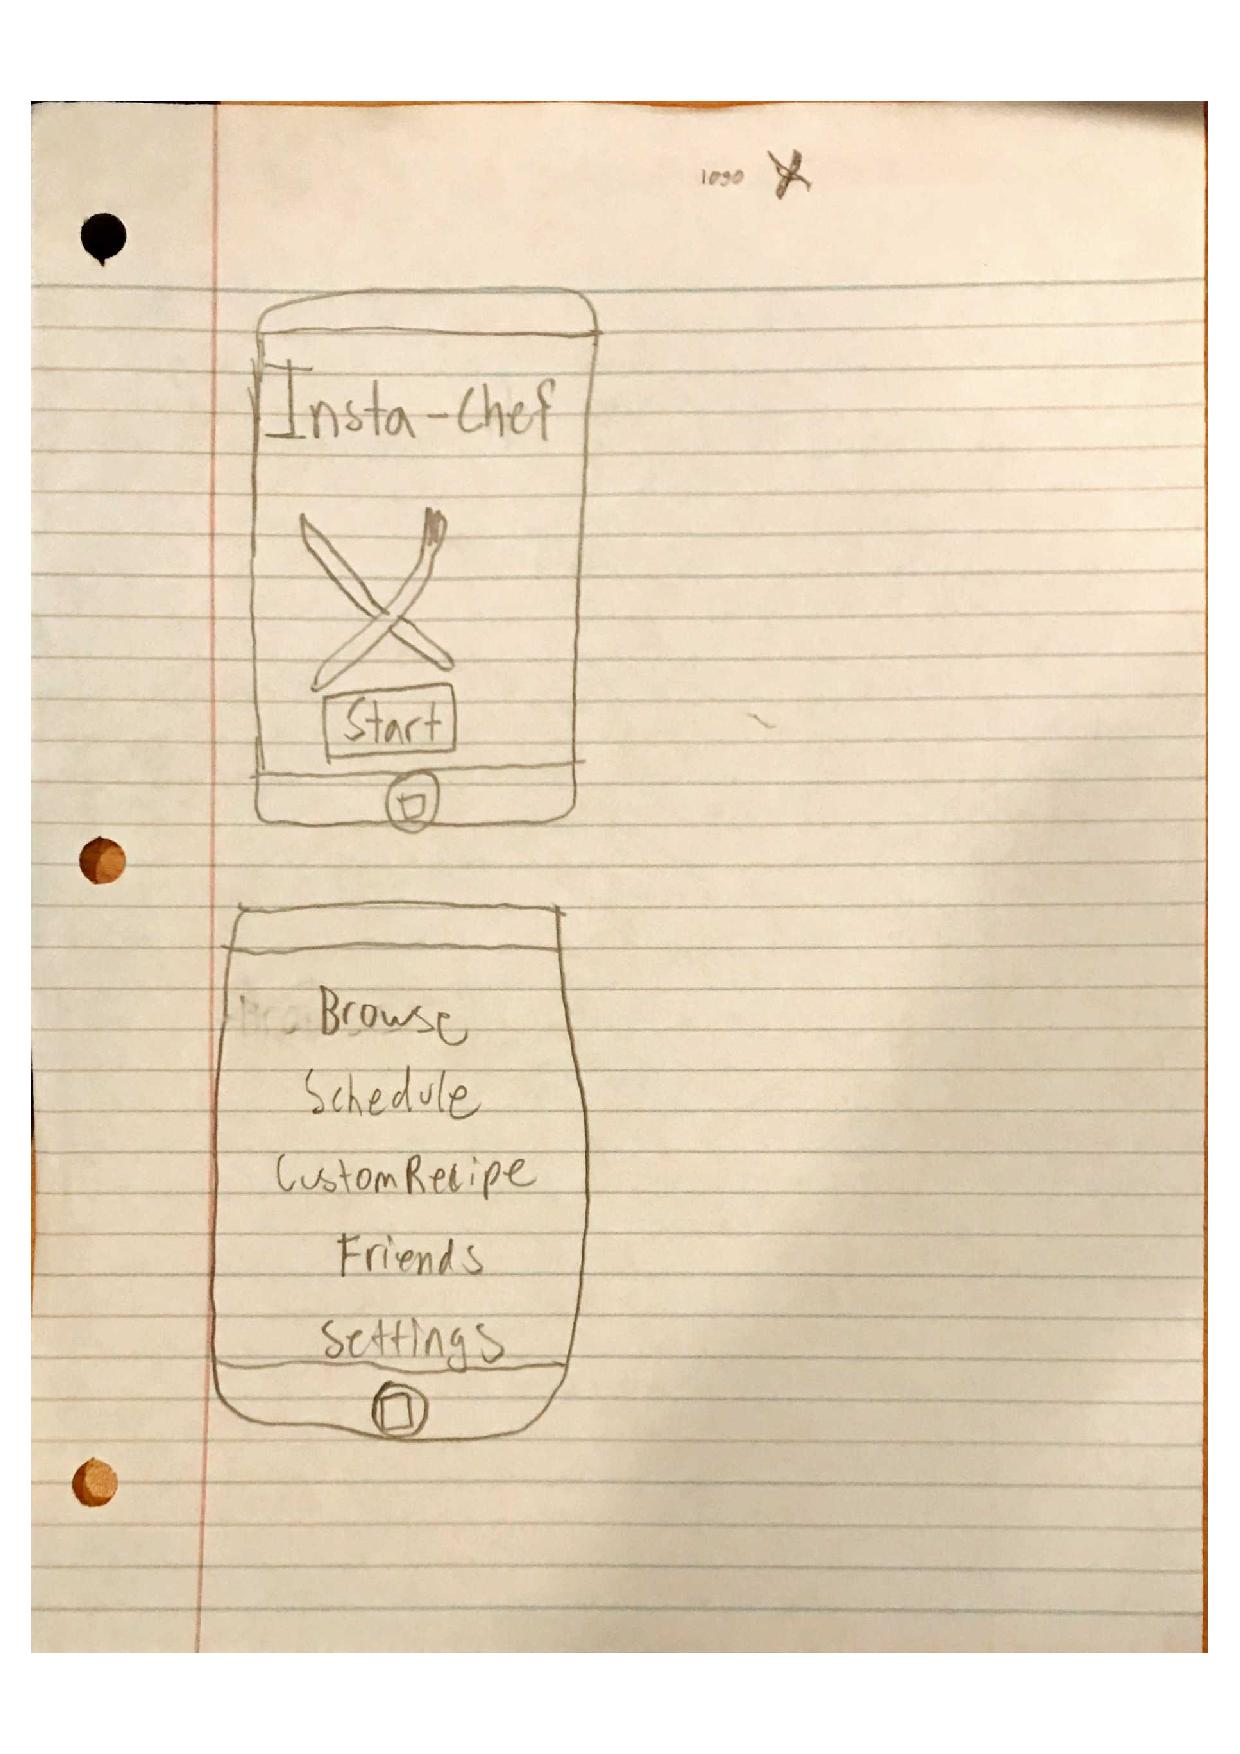 logo
Insta-Chef
Start
Browse
Schedule
CustomRecipe
Friends
Settings